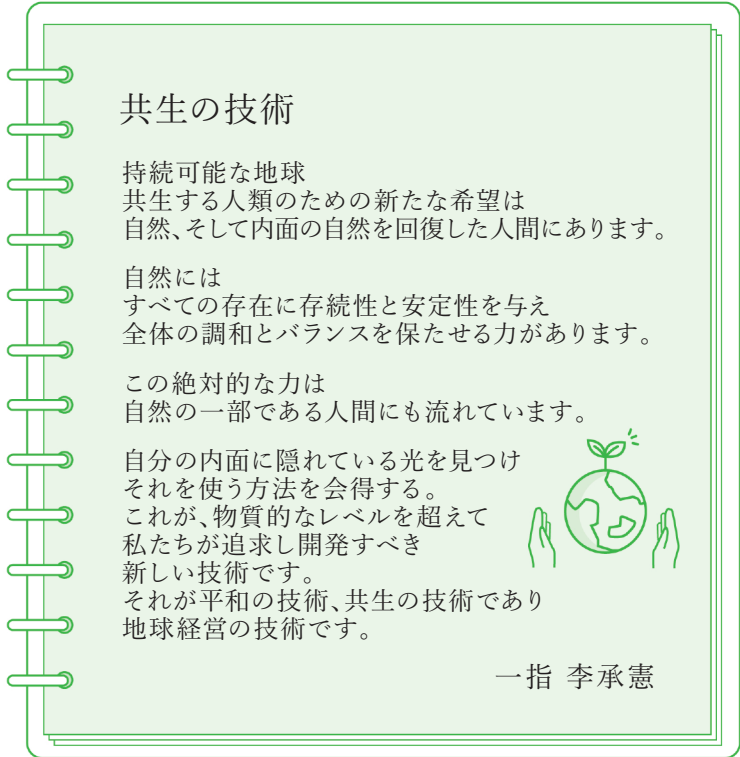 共生の技術
持続可能な地球
共生する人類のための新たな希望は
自然、そして内面の自然を回復した人間にあります。
自然には
すべての存在に存続性と安定性を与え
全体の調和とバランスを保たせる力があります。
この絶対的な力は
自然の一部である人間にも流れています。
自分の内面に隠れている光を見つけ
それを使う方法を会得する。
これが、物質的なレベルを超えて
私たちが追求し開発すべき
新しい技術です。
それが平和の技術、共生の技術であり
地球経営の技術です。
一指 李承憲